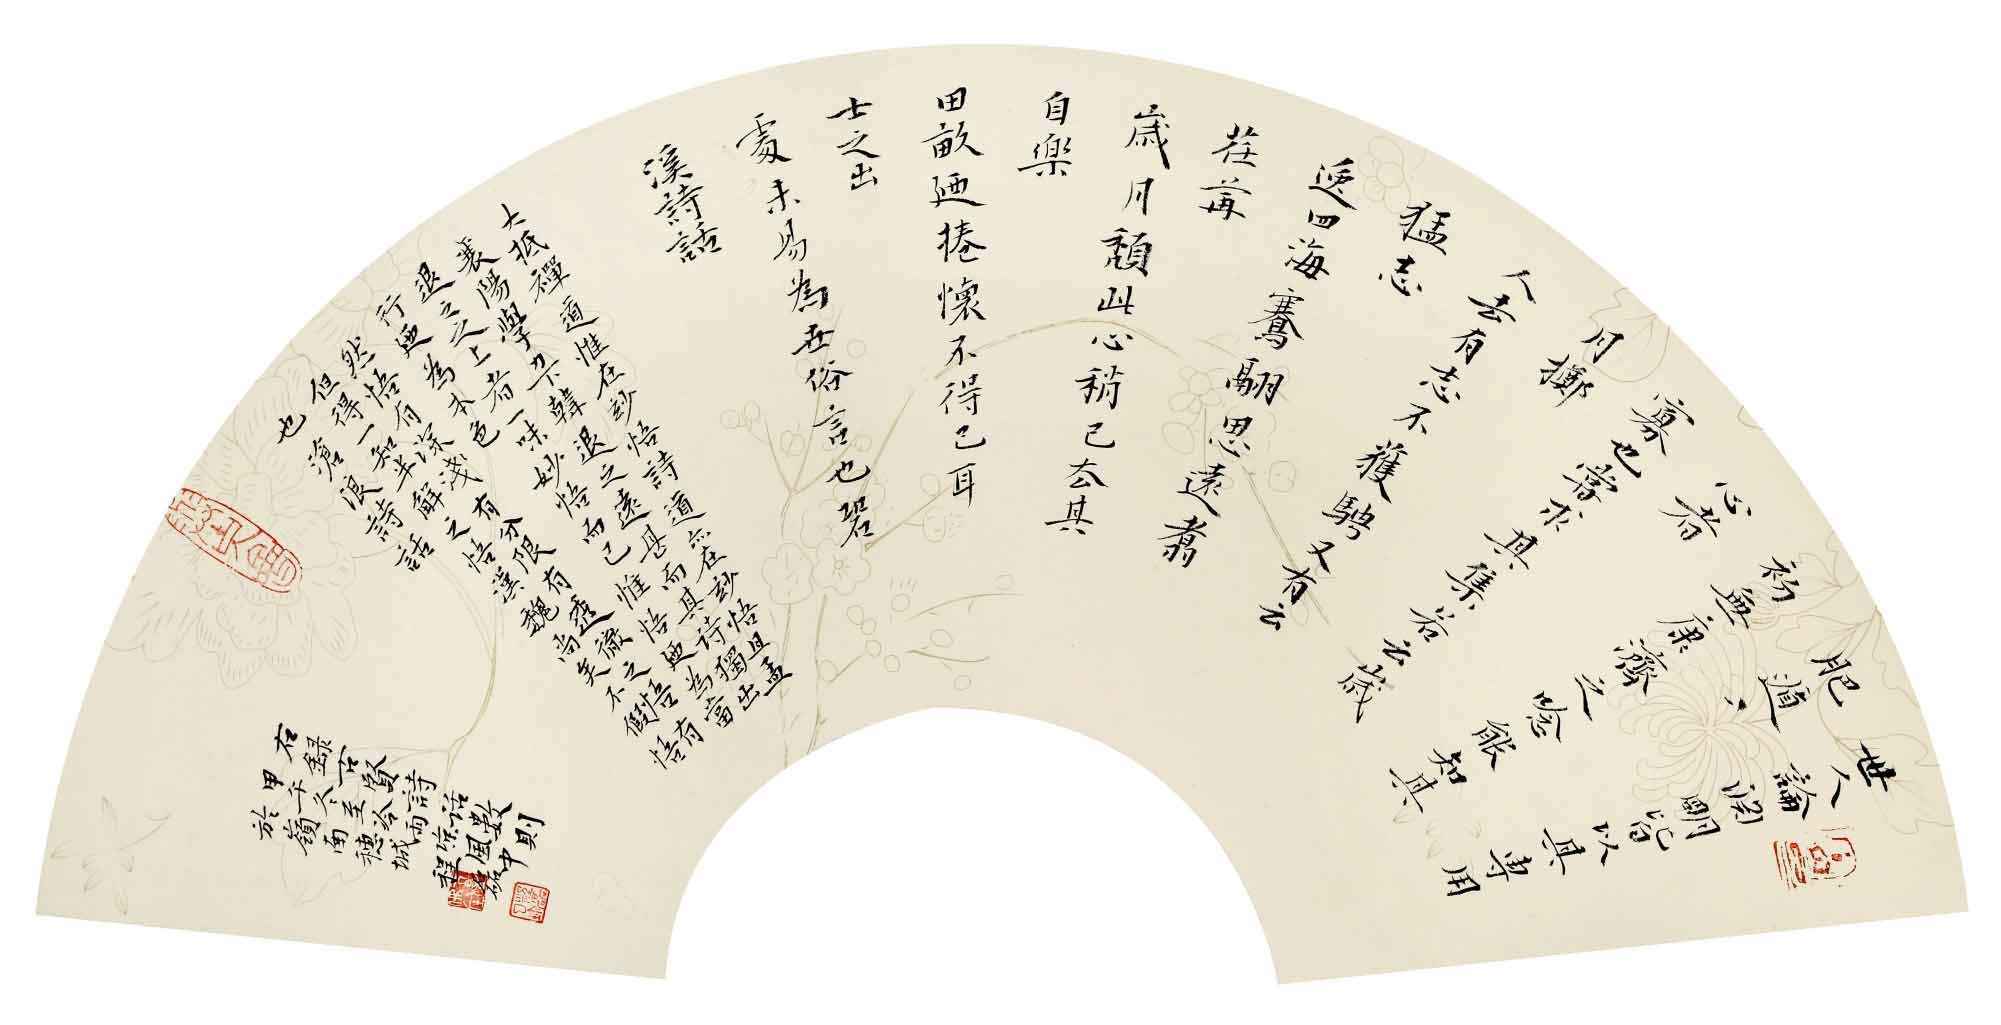 世人論淵明皆以其專用
肥遁
初無康濟之念能知其
心者
寡也嘗求其集若云歲
月擲
人去有志不獲騁又有云
猛志
逸四海騫翮思遠翥
荏苒
歲月頹此心稍已去其
自樂
田畝廼捲懷不得已耳
士之出
處未易為世俗言也碧
溪詩話
大抵禪道惟在玅悟詩道亦在玅悟且孟
襄陽學力下韓退之遠甚而其詩獨出
退之之上者一味妙悟而已惟悟廼為當
行廼為本色
然悟有深淺有分限有透徹之悟有
但得一知半解之悟漢魏尚矣不假悟
也滄浪詩話
右錄古賢詩話數則
甲午 至 雨涼風中
於嶺南穗城程磊